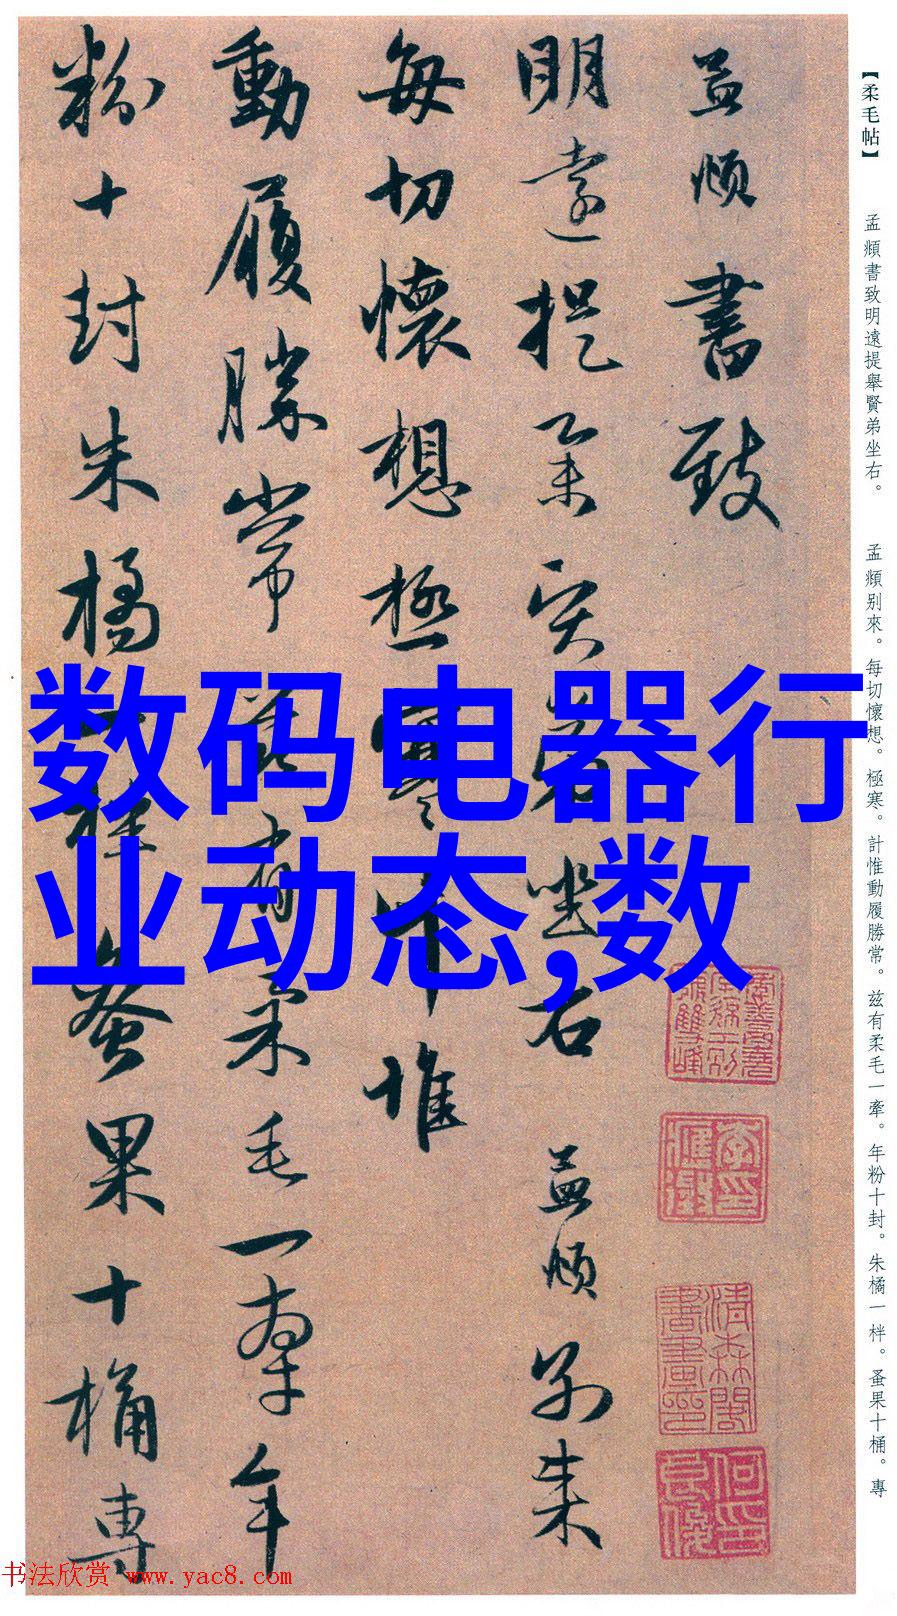 【柔毛帖】
孟頫書致明遠提舉賢弟坐右。
孟頫别來。每切懷想。極寒。計惟動履勝常。兹有柔毛一牽。年粉十封。朱橘一柈。蚤果十桶。專
孟頫書致
明遠提舉賢弟坐右 孟頫别來
每切懷想極寒計惟
動履勝常兹有柔毛一牽年
粉十封朱橘一柈蚤果十桶專
数码电器行
业动态,数
清森閣書畫印
书法欣赏 www.yac8.com